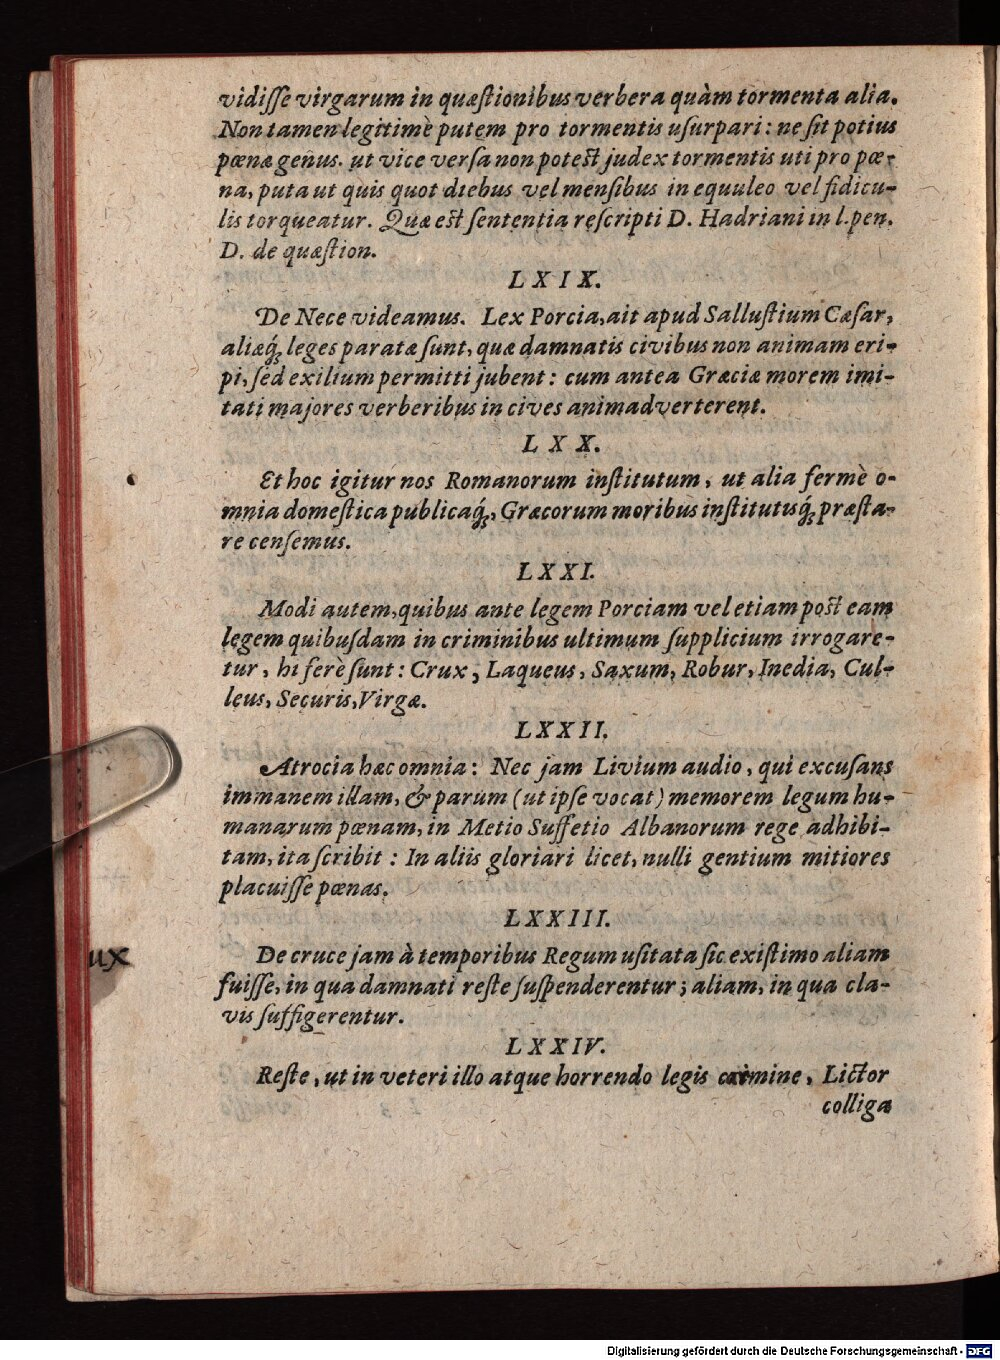 vidisse virgarum in quæstionibus verbera quàm tormenta alia.
Non tamen legitimè putem pro tormentis usurpari: ne sit potius
pœnæ genus. ut vice versa non potest judex tormentis uti pro pœ-
na, puta ut quis quot diebus vel mensibus in equuleo vel fidicu-
lis torqueatur. Quæ est sententia rescripti D. Hadriani in l. pen.
D. de quæstion.
LXIX.
De Nece videamus. Lex Porcia, ait apud Sallustium Cæsar,
aliæq́; leges paratæ sunt, quæ damnatis civibus non animam eri-
pi, sed exilium permitti jubent: cum antea Græciæ morem imi-
tati majores verberibus in cives animadverterent.
LXX.
Et hoc igitur nos Romanorum institutum, ut alia fermè o-
mnia domestica publicaq́;, Græcorum moribus institutisq́; præsta-
re censemus.
LXXI.
Modi autem, quibus ante legem Porciam vel etiam post eam
legem quibusdam in criminibus ultimum supplicium irrogare-
tur, hi ferè sunt: Crux, Laqueus, Saxum, Robur, Inedia, Cul-
leus, Securis, Virgæ.
LXXII.
Atrocia hæc omnia: Nec jam Livium audio, qui excusans
immanem illam, & parum (ut ipse vocat) memorem legum hu-
manarum pœnam, in Metio Suffetio Albanorum rege adhibi-
tam, ita scribit: In aliis gloriari licet, nulli gentium mitiores
placuisse pœnas.
LXXIII.
ux
De cruce jam à temporibus Regum usitata sic existimo aliam
fuisse, in qua damnati reste suspenderentur; aliam, in qua cla-
vis suffigerentur.
LXXIV.
Reste, ut in veteri illo atque horrendo legis carmine, Lictor
colliga
Digitalisierung gefördert durch die Deutsche Forschungsgemeinschaft - DFG